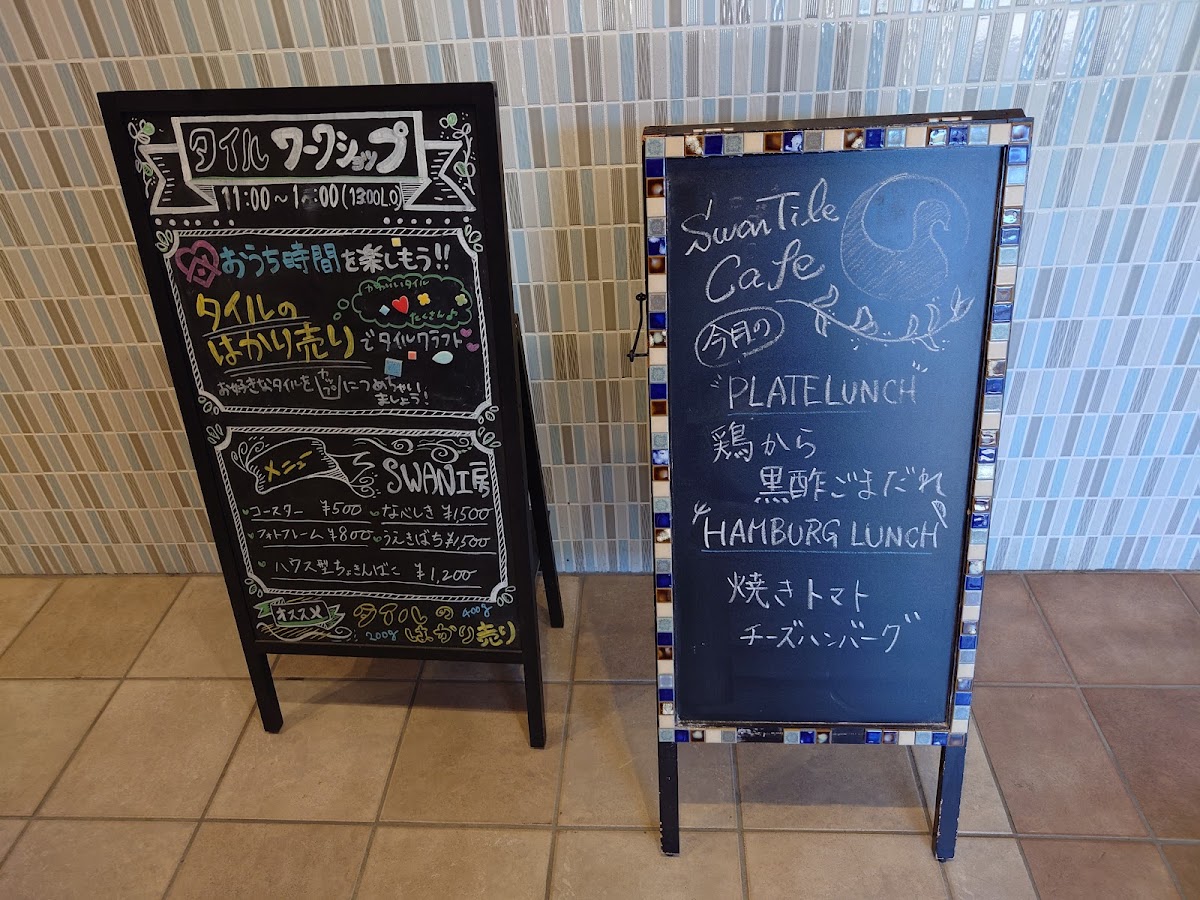 タイル ワークショップ
11:00〜1 :00(13:00L.O)
おうち時間を楽しもう!!
かわいいタイル
たくさんよ
タイルの
はかり売りでタイルクラフト
お好きなタイルをカップにつめちゃい
ましょう!
メニュー
SWAN工房
コースター ¥500
なべしき ¥1,500
フォトフレーム ¥800
うえきばち ¥1,500
ハウス型ちょきんばこ ¥1,200
オススメ
タイルの 400g
200g はかり売り
Swan Tile
Cafe
今月の
"PLATE LUNCH"
鶏から
黒酢ごまだれ
"HAMBURG LUNCH"
焼きトマト
チーズハンバーグ